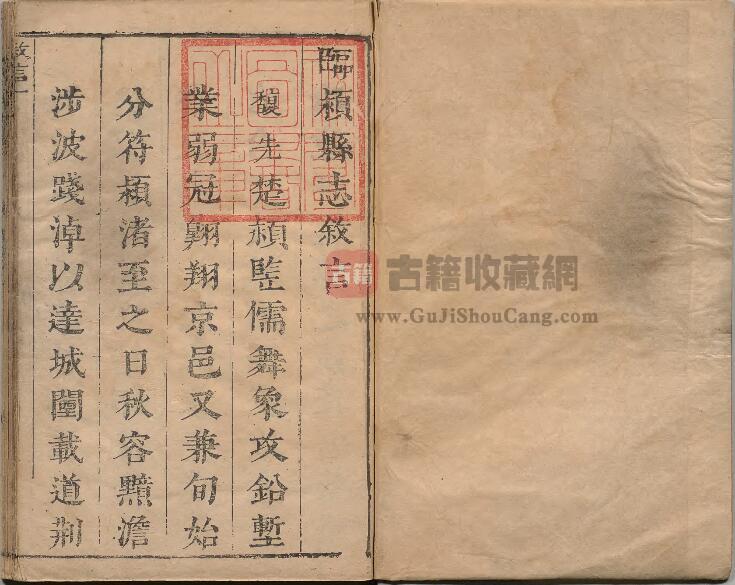 臨潁縣志敘言
馥先楚潁竪儒舞象攻鉛塹
業弱冠翱翔京邑又兼旬始
分符潁渚至之日秋容黯澹
涉波踐淖以達城闉載道荆
古籍
古籍收藏網
www.GuJiShouCang.com